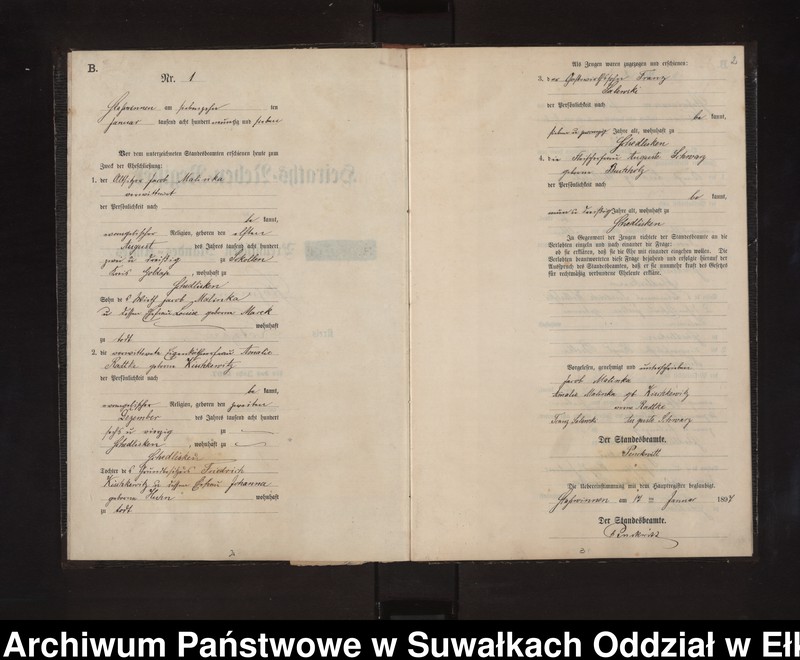 B.
Nr. 1
am siebenzehn ten
Januar tausend acht hundert neunzig und sieben
Vor dem unterzeichneten Standesbeamten erschienen heute zum
Zweck der Eheschließung:
1. der Jacob Malinka
verwittwet
der Persönlichkeit nach
be kannt,
evangelischer Religion, geboren den elften
August des Jahres tausend acht hundert
zwei u dreißig zu
Kreis Goldap, wohnhaft zu
Schedlisken
Sohn des Wirth Jacob Malinka
u dessen Ehefrau Louise geborene Marek
wohnhaft
zu todt
2. die verwittwete Eigenkäthnerfrau Amalie
Radtke geborene Kischkewitz
der Persönlichkeit nach
be kannt,
evangelischer Religion, geboren den zweiten
Dezember des Jahres tausend acht hundert
sechs u vierzig zu
Schedlisken, wohnhaft zu
Schedlisken
Tochter des Grundbesitzers Friedrich
Kischkewitz u dessen Ehefrau Johanna
geborene wohnhaft
zu todt.
2
Als Zeugen waren zugezogen und erschienen:
3. der Franz
der Persönlichkeit nach
be kannt,
sieben u zwanzig Jahre alt, wohnhaft zu
Schedlisken
4. die Auguste Schwarz
geborene Buchholz
der Persönlichkeit nach
be kannt,
neun u dreißig Jahre alt, wohnhaft zu
Schedlisken
In Gegenwart der Zeugen richtete der Standesbeamte an die
Verlobten einzeln und nach einander die Frage:
ob sie erklären, daß sie die Ehe mit einander eingehen wollen. Die
Verlobten beantworteten diese Frage bejahend und erfolgte hierauf der
Ausspruch des Standesbeamten, daß er sie nunmehr kraft des Gesetzes
für rechtmäßig verbundene Eheleute erkläre.
Vorgelesen, genehmigt und unterschrieben
Jacob Malinka
Amalie Malinka gb. Kischkewitz
verw Radtke
Franz Auguste Schwarz
Der Standesbeamte.
Die Uebereinstimmung mit dem Hauptregister beglaubigt.
am 17 ten Januar 1897
Der Standesbeamte.
Archiwum Państwowe w Suwałkach Oddział w Ełk